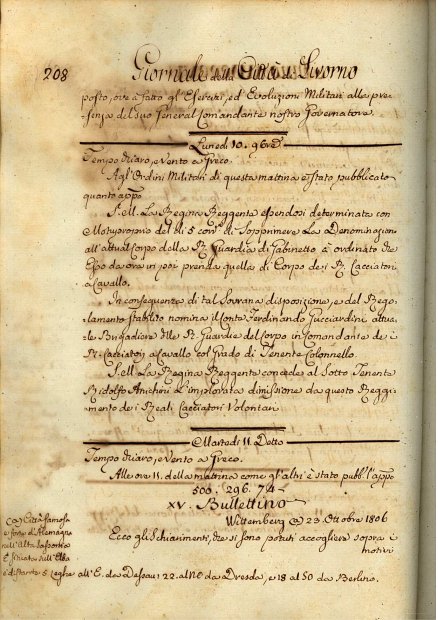 208 Giornale della Città di Livorno
posto, ove à fatto gl'Esercizi, ed'Evoluzioni Militari alla pre-
senza del suo General Comandante nostro Governatore.
Lunedì 10. 9bre
Tempo chiaro, e Vento a Greco.
Agl'Ordini Militari di questa mattina è stato pubblicato
quanto app.o
S. M. La Regina Reggente essendosi determinata con
Motuproprio del dì 5 corr. di Sopprimere La Denominazion
all'actual Corpo della R. Guardia di Gabinetto à ordinato che
Esso da ora in poi prenda quella di Corpo de i R. Cacciatori
a Cavallo.
In conseguenza di tal Sovrana disposizione, e del Rego-
lamento stabilito nomina il Conte Ferdinando Guicciardini attua-
le Brigadiere delle R. Guardie del Corpo in Comandante de i
R. Cacciatori a Cavallo col Grado di Tenente Colonnello.
S. M. La Regina Reggente concede al Sotto Tenente
Ridolfo Anichini L'implorata dimissione da questo Reggi-
mento de i Reali Cacciatori Volontari
Martedì 11. Detto
Tempo chiaro, e Vento a Greco.
Alle ore 11. della mattina come gl'altri è stato pubb. l'app.o
500. 296. 74
XV. Bullettino
Wittemberg (a) 23 Ottobre 1806
Ecco gli Schiarimenti, che si sono potuti accogliere sopra i
motivi
(a) Città famosa
e forte d'Alemagna
nell'Alta Sassonia
È situata sull'Elba
è distante 5 Leghe all'E. da Dessau; 22. al NO da Dresda, e 18 al SO da Berlino.